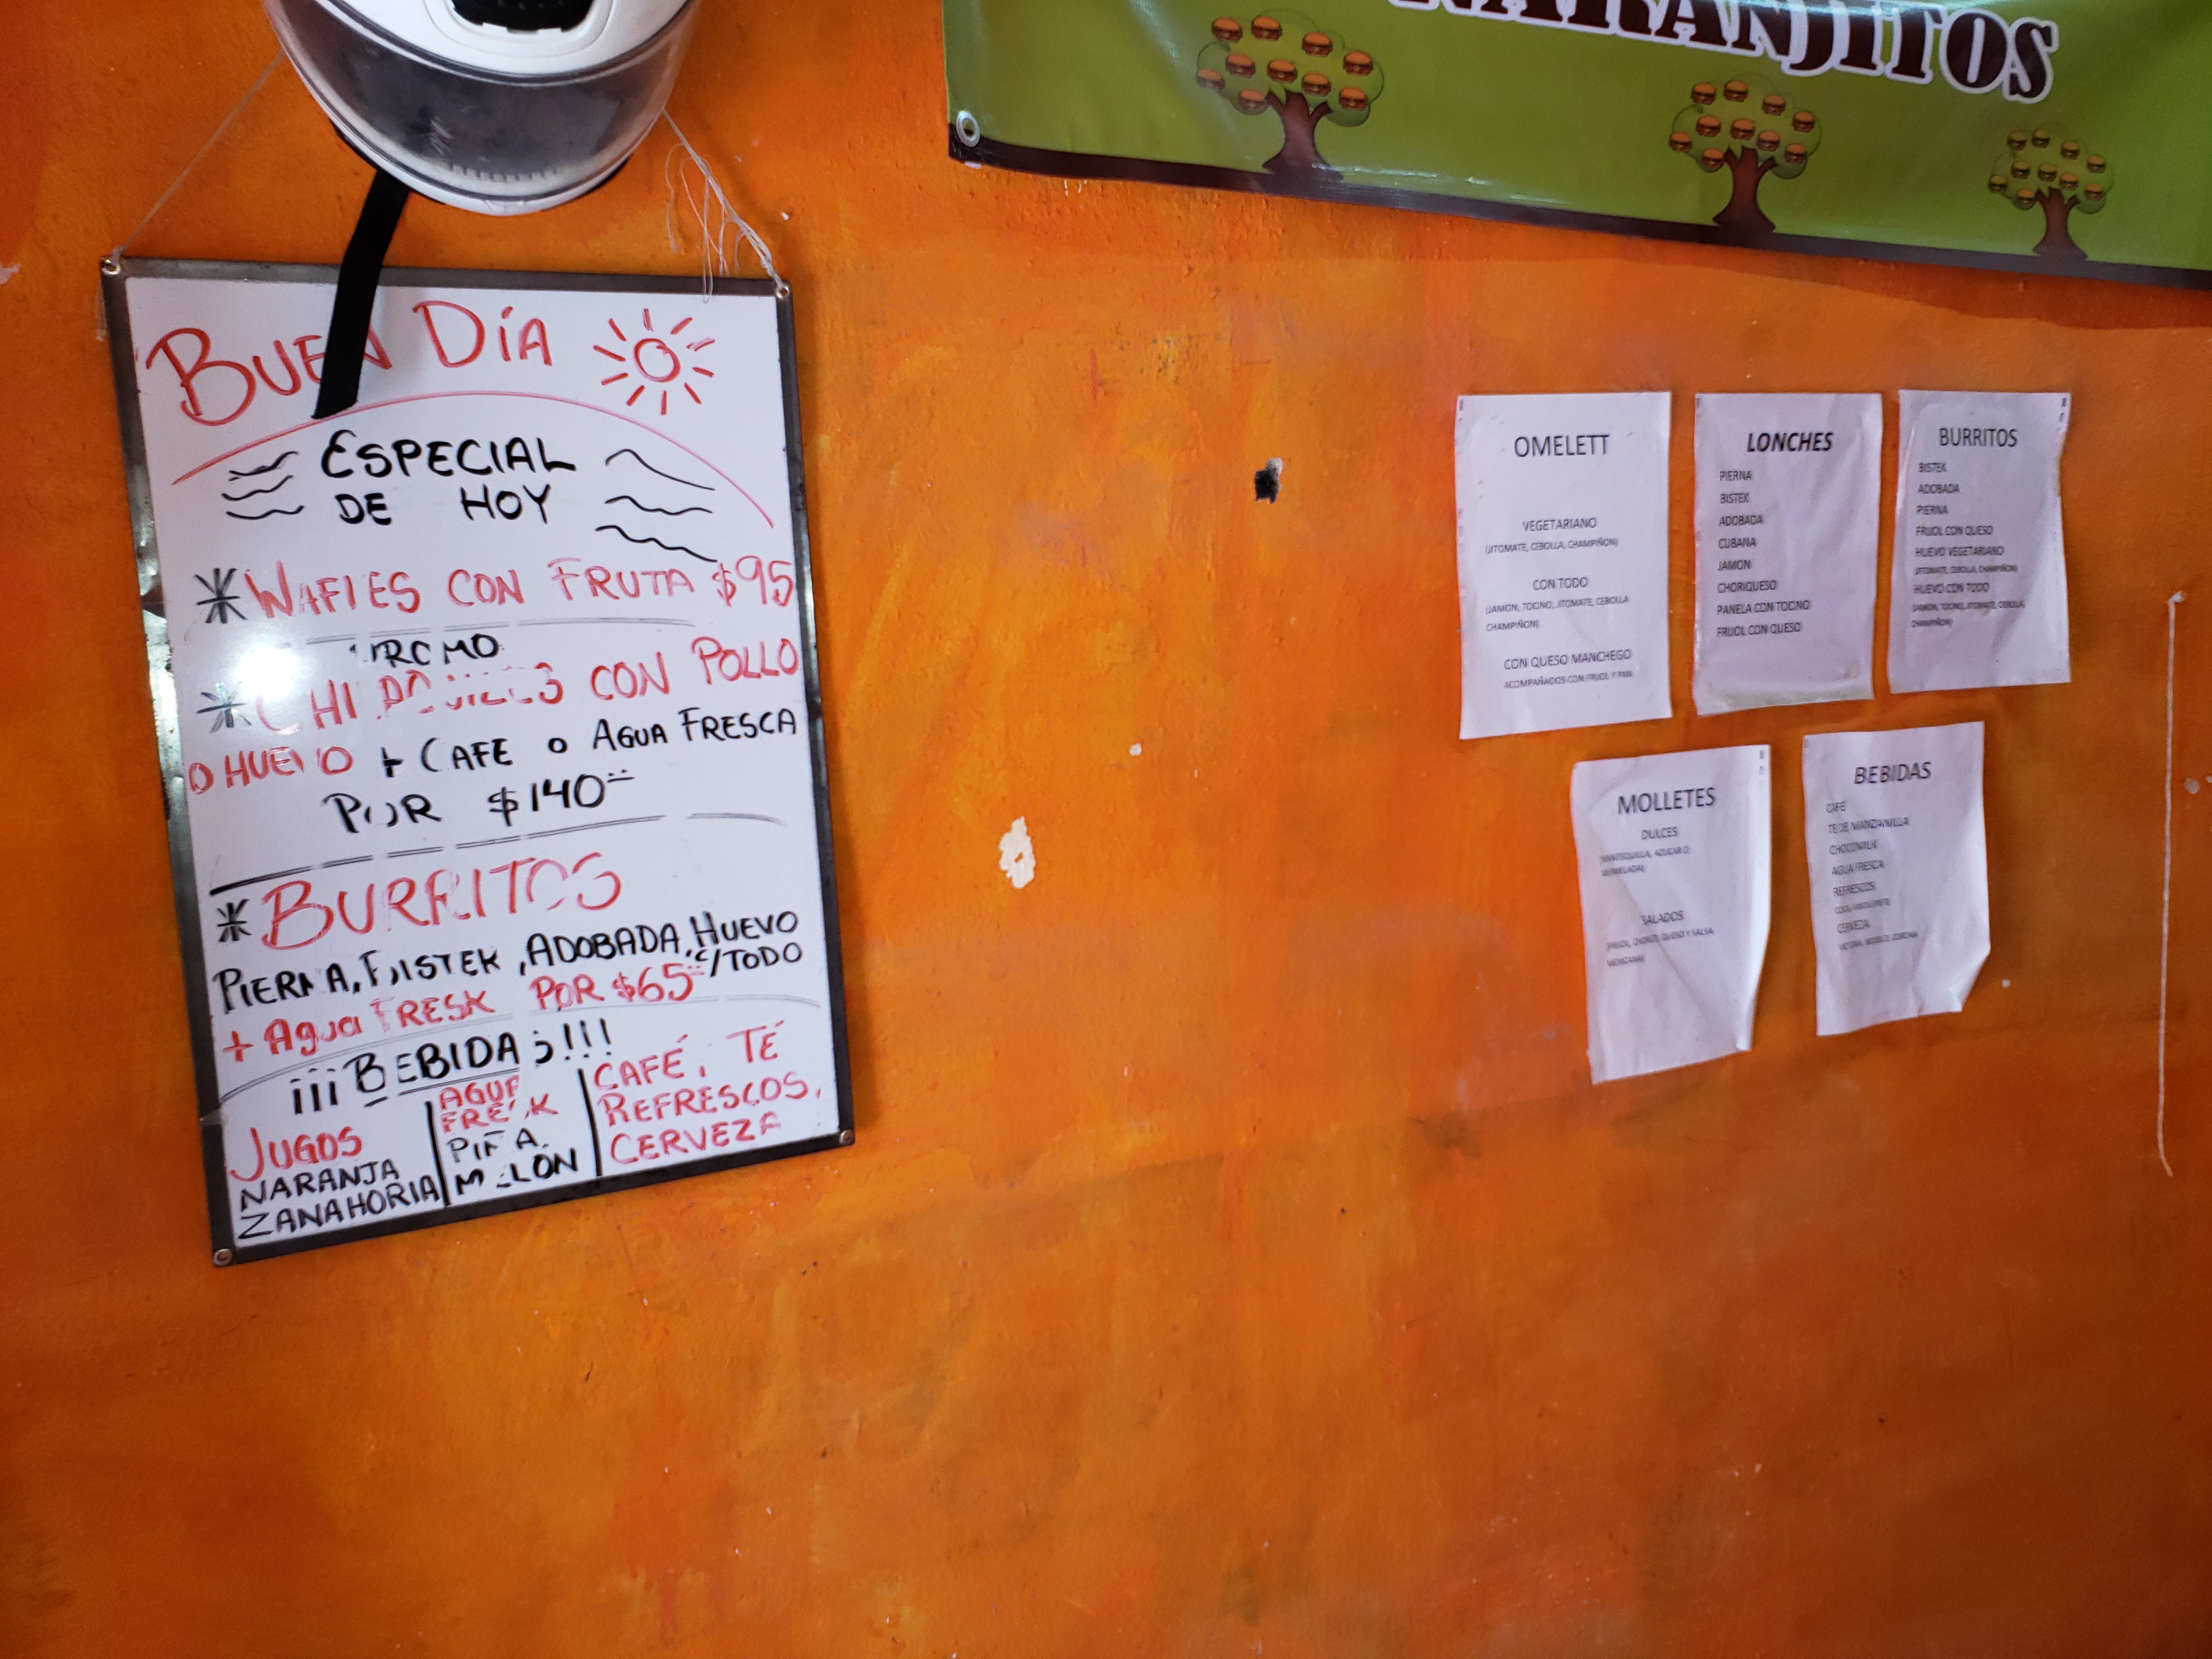 NARANJITOS
BUEN DÍA
ESPECIAL
DE HOY
*WAFLES CON FRUTA $95
*CHILAQUILES CON POLLO
O HUEVO + CAFE O AGUA FRESCA
POR $140
*BURRITOS
PIERNA, BISTEK, ADOBADA, HUEVO
C/TODO
+ Agua FRESK POR $65
¡¡¡BEBIDAS!!!
JUGOS
NARANJA
ZANAHORIA
AGUA
FRESK
PIÑA
MELON
CAFÉ, TÉ
REFRESCOS,
CERVEZA
OMELETT
VEGETARIANO
(JITOMATE, CEBOLLA, CHAMPIÑON)
CON TODO
(JAMON, TOCINO, JITOMATE, CEBOLLA
CHAMPIÑON)
CON QUESO MANCHEGO
ACOMPAÑADOS CON FRIJOL Y PAN
LONCHES
PIERNA
BISTEK
ADOBADA
CUBANA
JAMON
CHORIQUESO
PANELA CON TOCINO
FRIJOL CON QUESO
BURRITOS
BISTEK
ADOBADA
PIERNA
FRIJOL CON QUESO
HUEVO VEGETARIANO
(JITOMATE, CEBOLLA, CHAMPIÑON)
HUEVO CON TODO
(JAMON, TOCINO, JITOMATE, CEBOLLA,
CHAMPIÑON)
MOLLETES
DULCES
MANTEQUILLA, AZUCAR O
MERMELADA)
SALADOS
(FRIJOL, CHORIZO, QUESO Y SALSA
MEXICANA)
BEBIDAS
CAFÉ
TE DE MANZANILLA
CHOCOMILK
AGUA FRESCA
REFRESCOS
CERVEZA